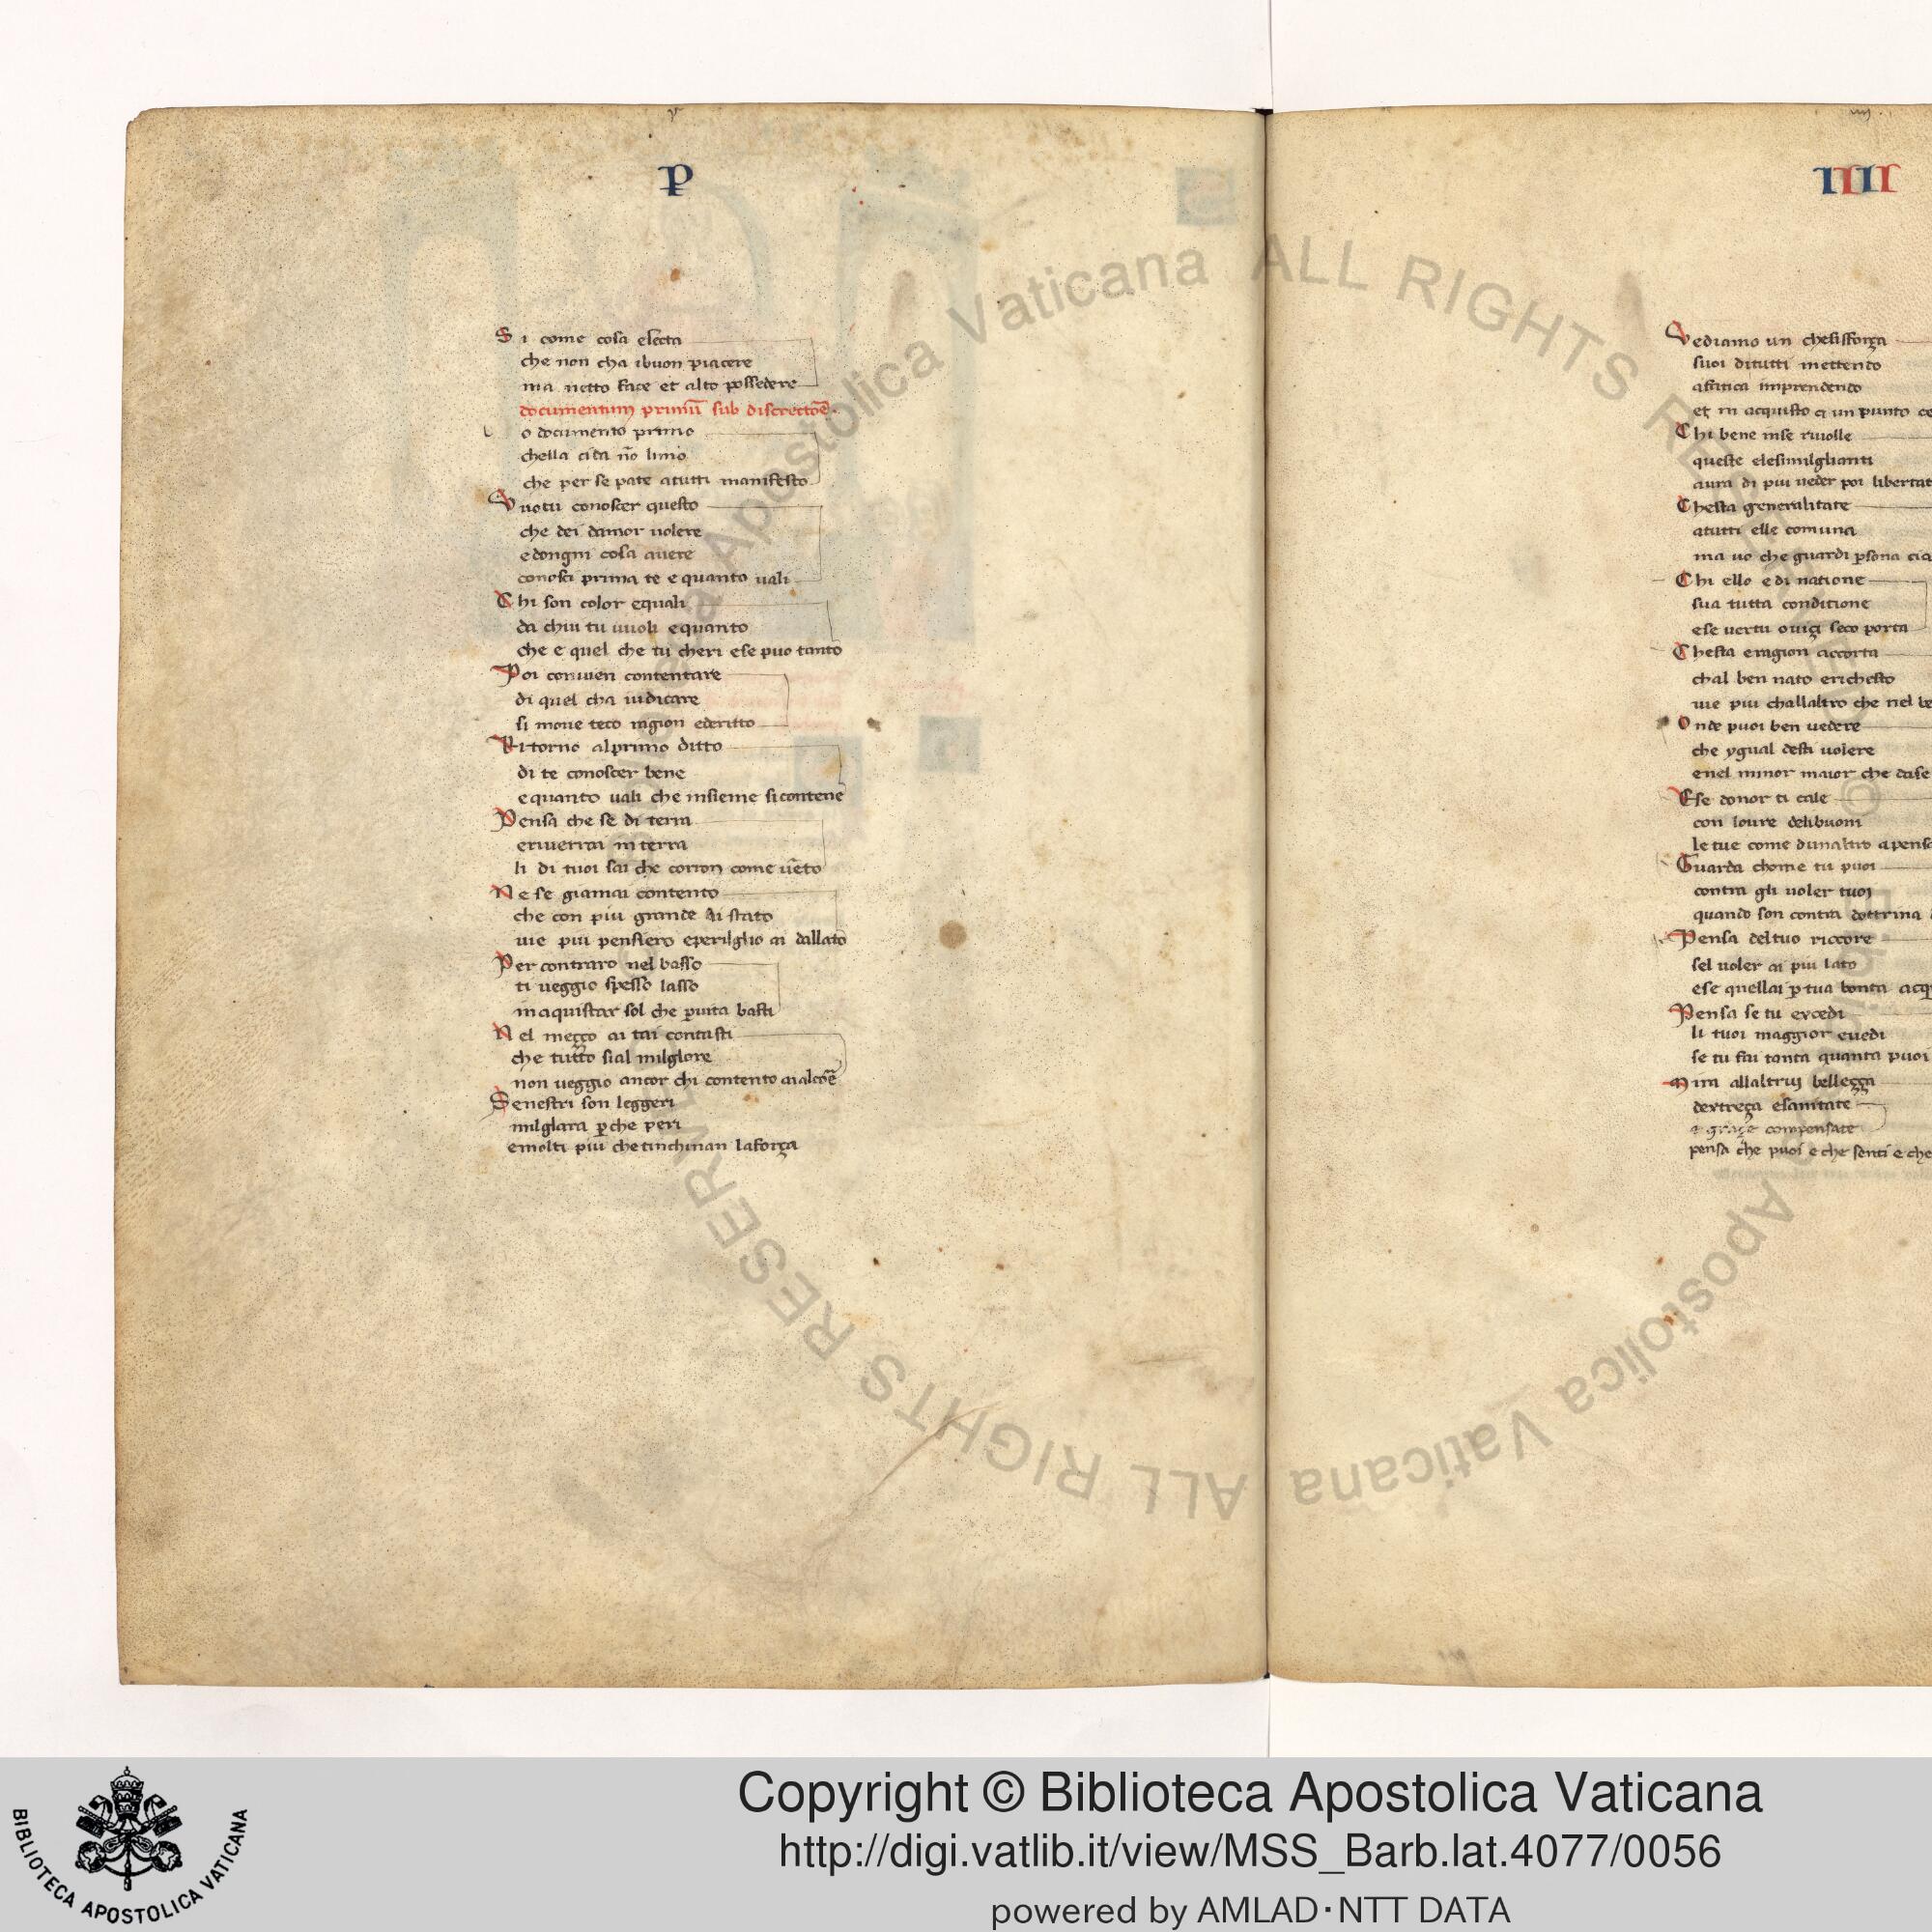 P
Si come cosa electa
che non cha ibuon piacere
ma netto face et alto possedere
documentum primū sub discrectoē.
o documento primo
chella cita nō limo
che per se pate atutti manifesto
Vuotu conoscer questo
che dei damor uolere
edongni cosa auere
conosci prima te e quanto uali
Chi son color equali
da chui tu uuoli equanto
che e quel che tu cheri ese puo tanto
Poi conuien contentare
di quel cha iudicare
si moue teco ragion ederitto
Ritorno alprimo ditto
di te conoscer bene
equanto uali che insieme sicontene
Pensa che se di terra
eriuerrai in terra
li di tuoi sai che corron come uēto
Ne se giamai contento
che con piu grande ai stato
uie piu pensiero eperilglio ai dallato
Per contraro nel basso
ti ueggio spesso lasso
in aquistar sol che ꝑuita basti
Nel meçço ai tai contasti
che tutto sial milglore
non ueggio ancor chi contento
Senestri son leggeri
milglara ꝑche peri
emolti piu chetinchinan laforça
IIII
Vediamo un chesisforça
suoi ditutti mettendo
afatica imprendendo
et in acquisto a un punto
Chi bene inse riuolle
queste elesimilglianti
aura di piu ueder poi libertat
Chesta generalitate
atutti elle comuna
ma uo che guardi ꝑsona
Chi ello edi natione
sua tutta conditione
ese uertu ouiçi seco porta
Chesta eragion accorta
chal ben nato erichesto
uie piu challaltro che nel be
Onde puoi ben uedere
che ygual desti uolere
enel minor maior che dase
Ese donor ti cale
con loure delibuoni
le tue come dunaltro apensa
Guarda chome tu puoi
contra gli uoler tuoi
quando son contra dottrina
Pensa deltuo riccore
sel uoler ai piu lato
ese quellai ꝑ tua bonta acq
Pensa se tu excedi
li tuoi maggior euedi
se tu fai tanta quanta puoi
Mira allaltruj belleçça
dextreça esanitate
e graçie compensate
pensa che puoi e che senti e che
Copyright © Biblioteca Apostolica Vaticana
http://digi.vatlib.it/view/MSS_Barb.lat.4077/0056
powered by AMLAD·NTT DATA
BIBLIOTECA APOSTOLICA VATICANA
Apostolica Vaticana ALL RIGHTS RESERVED
Apostolica Vaticana ALL RIGHTS RESERVED